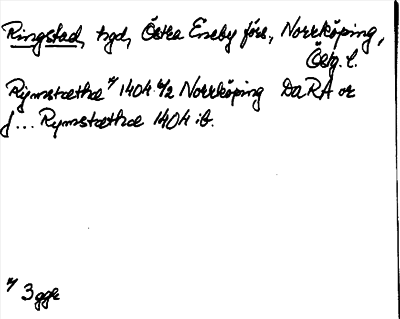 Ringstad, hgd, Östra Eneby förs., Norrköping,
Östg. l.
Rijmstæthæ ¹/ 1404 4/2 Norrköping DaRA or
f ... Rymstæthæ 1404 ib.
¹/ 3 ggr